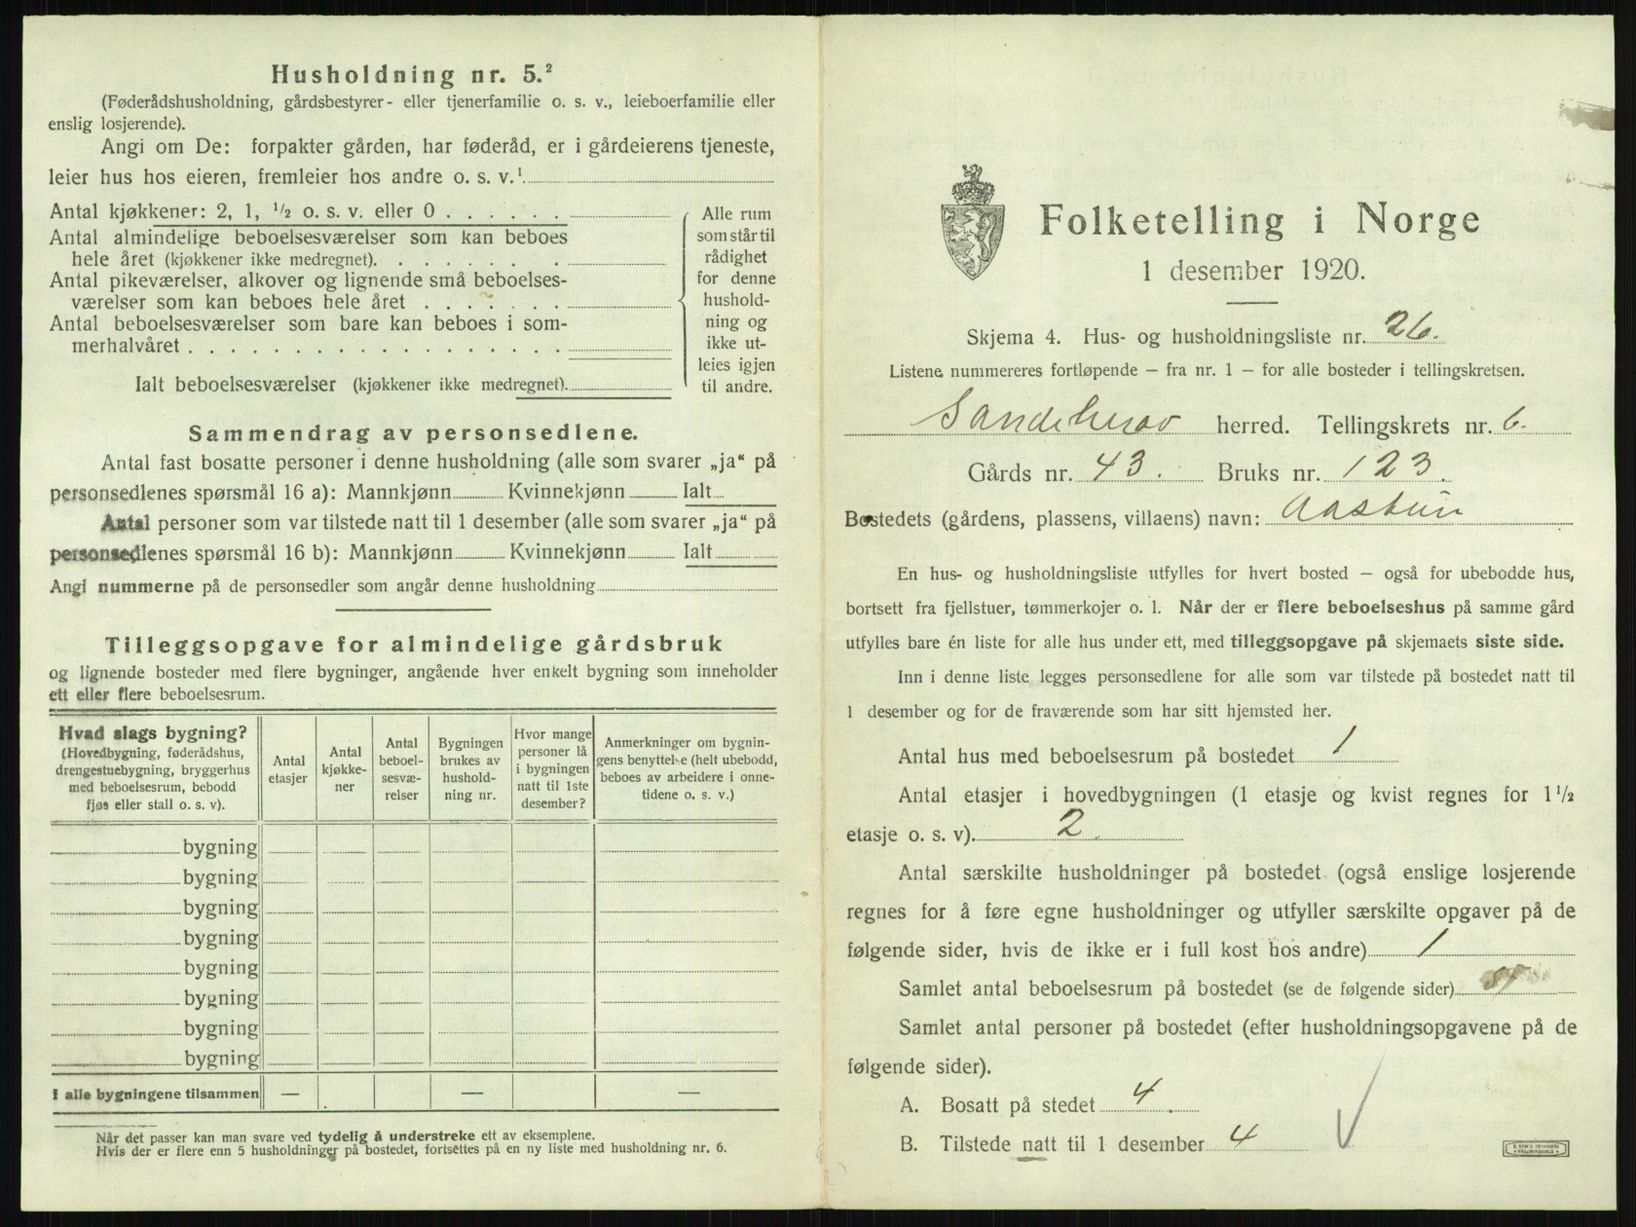 Husholdning nr. 5.²
(Føderådshusholdning, gårdsbestyrer- eller tjenerfamilie o. s. v., leieboerfamilie eller
enslig losjerende).
Angi om De: forpakter gården, har føderåd, er i gårdeierens tjeneste,
leier hus hos eieren, fremleier hos andre o. s. v.¹
Antal kjøkkener: 2, 1, ½ o. s. v. eller 0
Antal almindelige beboelsesværelser som kan beboes
hele året (kjøkkener ikke medregnet).
Antal pikeværelser, alkover og lignende små beboelses-
værelser som kan beboes hele året
Antal beboelsesværelser som bare kan beboes i som-
merhalvåret
Ialt beboelsesværelser (kjøkkener ikke medregnet).
Alle rum
som står til
rådighet
for denne
hushold-
ning og
ikke ut-
leies igjen
til andre.
Sammendrag av personsedlene.
Antal fast bosatte personer i denne husholdning (alle som svarer „ja“ på
personsedlenes spørsmål 16 a): Mannkjønn Kvinnekjønn Ialt
Antal personer som var tilstede natt til 1 desember (alle som svarer „ja“ på
personsedlenes spørsmål 16 b): Mannkjønn Kvinnekjønn Ialt
Angi nummerne på de personsedler som angår denne husholdning
Tilleggsopgave for almindelige gårdsbruk
og lignende bosteder med flere bygninger, angående hver enkelt bygning som inneholder
ett eller flere beboelsesrum.
Hvad slags bygning?
(Hovedbygning, føderådshus,
drengestuebygning, bryggerhus
med beboelsesrum, bebodd
fjøs eller stall o. s. v).
Antal
etasjer
Antal
kjøkke-
ner
Antal
beboel-
sesvæ-
relser
Bygningen
brukes av
hushold-
ning nr.
Hvor mange
personer lå
i bygningen
natt til 1ste
desember?
Anmerkninger om bygnin-
gens benyttelse (helt ubebodd,
beboes av arbeidere i onne-
tidene o. s. v.)
bygning
bygning
bygning
bygning
bygning
bygning
bygning
bygning
I alle bygningene tilsammen — — —
Når det passer kan man svare ved tydelig å understreke ett av eksemplene.
Hvis der er flere enn 5 husholdninger på bostedet, fortsettes på en ny liste med husholdning nr. 6.
Folketelling i Norge
1 desember 1920.
Skjema 4. Hus- og husholdningsliste nr. 26.
Listene nummereres fortløpende — fra nr. 1 — for alle bosteder i tellingskretsen.
Sandeherav herred. Tellingskrets nr. 6.
Gårds nr. 43. Bruks nr. 123.
Bostedets (gårdens, plassens, villaens) navn: Aastun
En hus- og husholdningsliste utfylles for hvert bosted — også for ubebodde hus,
bortsett fra fjellstuer, tømmerkojer o. l. Når der er flere beboelseshus på samme gård
utfylles bare én liste for alle hus under ett, med tilleggsopgave på skjemaets siste side.
Inn i denne liste legges personsedlene for alle som var tilstede på bostedet natt til
1 desember og for de fraværende som har sitt hjemsted her.
Antal hus med beboelsesrum på bostedet 1
Antal etasjer i hovedbygningen (1 etasje og kvist regnes for 1½
etasje o. s. v). 2
Antal særskilte husholdninger på bostedet (også enslige losjerende
regnes for å føre egne husholdninger og utfyller særskilte opgaver på de
følgende sider, hvis de ikke er i full kost hos andre) 1
Samlet antal beboelsesrum på bostedet (se de følgende sider)
Samlet antal personer på bostedet (efter husholdningsopgavene på de
følgende sider).
A. Bosatt på stedet 4.
B. Tilstede natt til 1 desember 4